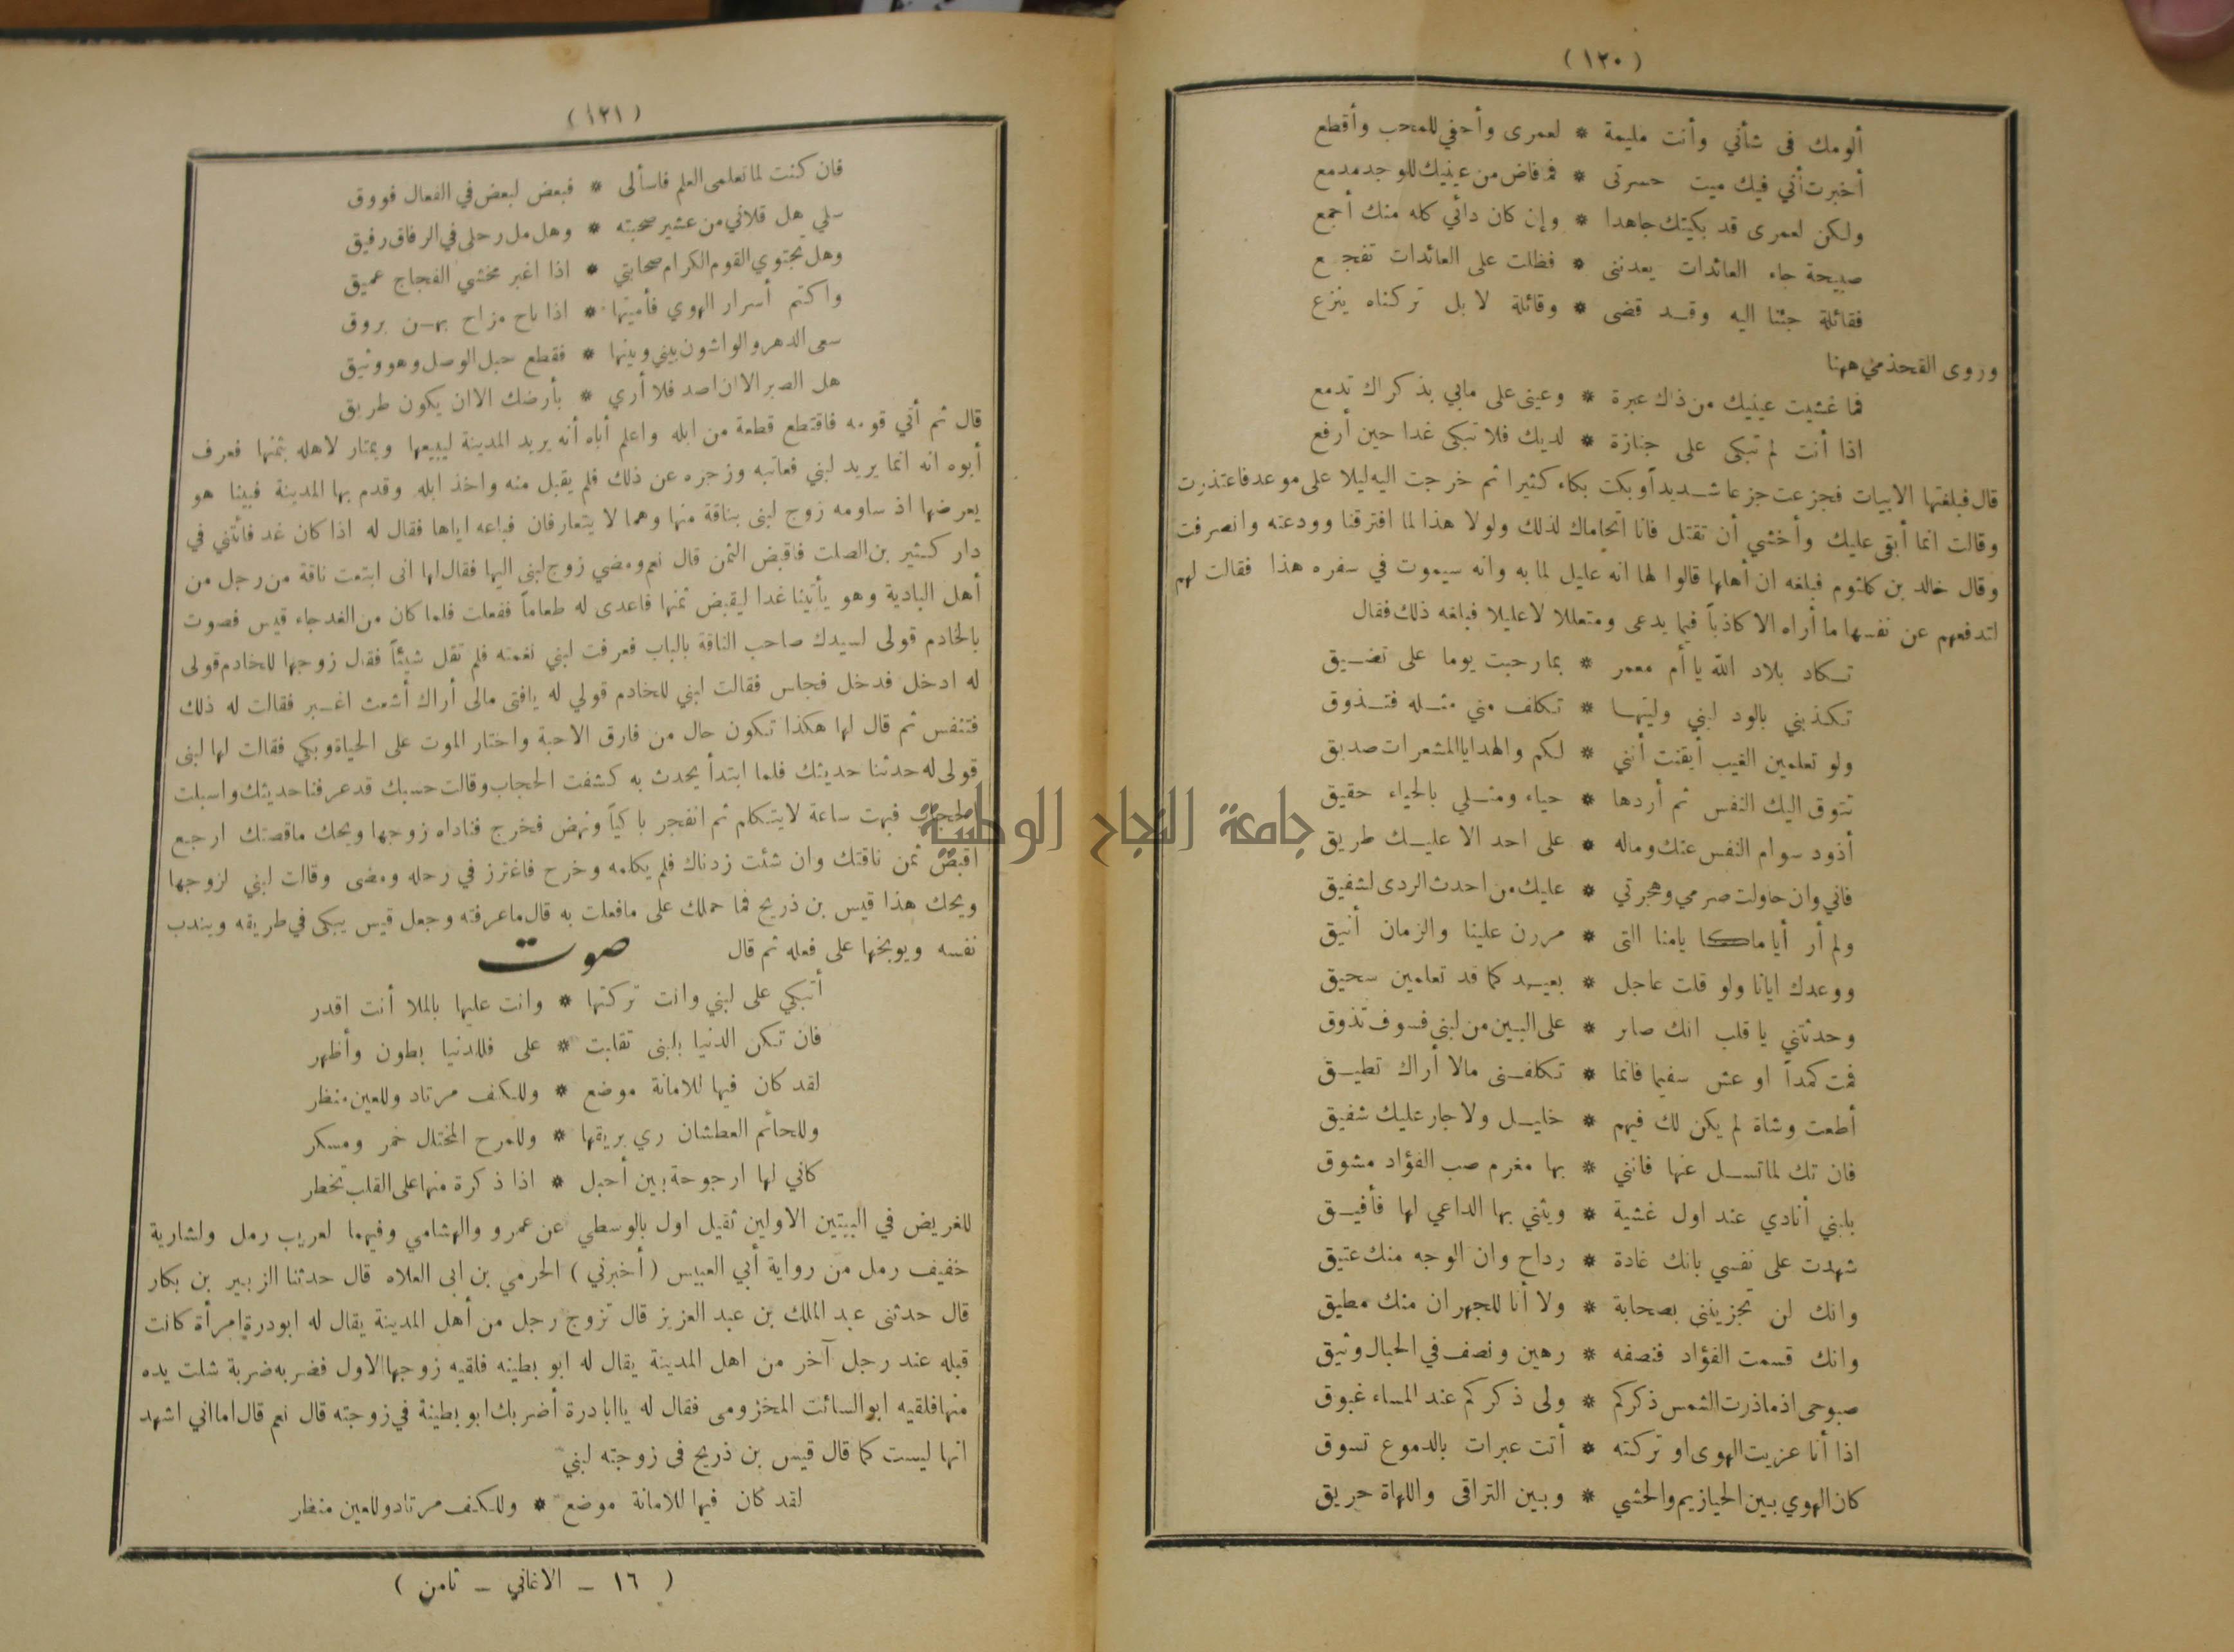 (١٢٠)
ألومك فى شأني وأنت مليمة * لعمرى وأجفي للمحب وأقطع
أخبرت أني فيك ميت حسرتى * فما فاض من عينيك للوجد مدمع
ولكن لعمرى قد بكيتك جاهدا * وإن كان دائي كله منك أجمع
صبيحة جاء العائدات يعدننى * فظلت على العائدات تفجع
فقائلة جئنا اليه وقد قضى * وقائلة لا بل تركناه ينزع
وروى القحذمي ههنا
فما غشيت عينيك من ذاك عبرة * وعينى على مابي بذكراك تدمع
اذا أنت لم تبكى على جنازة * لديك فلا تبكى غدا حين أرفع
قال فبلغتها الابيات فجزعت جزعا شديداً وبكت بكاء كثيرا ثم خرجت اليه ليلا على موعد فاعتذرت
وقالت انما أبقى عليك وأخشي أن تقتل فانا اتحاماك لذلك ولولا هذا لما افترقنا وودعته وانصرفت
وقال خالد بن كلثوم فبلغه ان أهلها قالوا لها انه عليل لما به وانه سيموت في سفره هذا فقالت لهم
لتدفعهم عن نفسها ما أراه الا كاذباً فيما يدعى ومتعللا لا عليلا فبلغه ذلك فقال
تكاد بلاد الله يا أم معمر * بما رحبت يوما على تضيق
تكذبني بالود لبني وليتها * تكلف مني مثله فتذوق
ولو تعلمين الغيب أيقنت أنني * لكم والهدايا المشعرات صديق
تتوق اليك النفس ثم أردها * حياء ومثلي بالحياء حقيق
أذود سوام النفس عنك وماله * على احد الا عليك طريق
فاني وان حاولت صرمي وهجرتي * عليك من احدث الردى لشفيق
ولم أر أياما كايامنا التى * مررن علينا والزمان أنيق
ووعدك ايانا ولو قلت عاجل * بعيد كما قد تعلمين سحيق
وحدثتني يا قلب انك صابر * على البين من لبنى فسوف تذوق
فمت كمداً او عش سقيما فانما * تكلفنى مالا أراك تطيق
أطعت وشاة لم يكن لك فيهم * خليل ولا جار عليك شفيق
فان تك لما تسل عنها فانني * بها مغرم صب الفؤاد مشوق
بلبني أنادي عند اول غشية * ويثني بها الداعي لها فأفيق
شهدت على نفسي بانك غادة * رداح وان الوجه منك عتيق
وانك لن تجزينني بصحابة * ولا أنا للهجران منك مطيق
وانك قسمت الفؤاد فنصفه * رهين ونصف في الحبال وثيق
صبوحى اذ ماذرت الشمس ذكركم * ولى ذكركم عند المساء غبوق
اذا أنا عزيت الهوى او تركته * أتت عبرات بالدموع تسوق
كان الهوي بين الحيازيم والحشي * وبين التراقى واللهاة حريق
(١٢١)
فان كنت لما تعلمى العلم فاسألى * فبعض لبعض في الفعال فووق
سلي هل قلاني من عشير صحبته * وهل مل رحلى في الرفاق رفيق
وهل يجتوي القوم الكرام صحابتي * اذا اغبر مخشي الفجاج عميق
واكتم أسرار الهوي فأميتها * اذا باح مزاح بهن بروق
سعى الدهر والواشون بيني وبينها * فقطع حبل الوصل وهو وثيق
هل الصبر الا ان اصد فلا أري * بأرضك الا ان يكون طريق
قال ثم أتي قومه فاقتطع قطعة من ابله واعلم أباه أنه يريد المدينة ليبيعها ويمتار لاهله بثمنها فعرف
أبوه انه انما يريد لبني فعاتبه وزجره عن ذلك فلم يقبل منه واخذ ابله وقدم بها المدينة فبينا هو
يعرضها اذ ساومه زوج لبنى بناقة منها وهما لا يتعارفان فباعه اياها فقال له اذا كان غد فائتني في
دار كثير بن الصلت فاقبض الثمن قال نعم ومضي زوج لبنى اليها فقال لها انى ابتعت ناقة من رجل من
أهل البادية وهو يأتينا غدا ليقبض ثمنها فاعدى له طعاماً ففعلت فلما كان من الغد جاء قيس فصوت
بالخادم قولى لسيدك صاحب الناقة بالباب فعرفت لبني نغمته فلم تقل شيئاً فقال زوجها للخادم قولى
له ادخل فدخل فجلس فقالت لبني للخادم قولي له يافتى مالى أراك أشعث اغبر فقالت له ذلك
فتنفس ثم قال لها هكذا تكون حال من فارق الاحبة واختار الموت على الحياة وبكي فقالت لها لبنى
قولى له حدثنا حديثك فلما ابتدأ يحدث به كشفت الحجاب وقالت حسبك قد عرفنا حديثك واسبلت
الحجاب فبهت ساعة لا يتكلم ثم انفجر باكياً ونهض فخرج فناداه زوجها ويحك ماقصتك ارجع
اقبض ثمن ناقتك وان شئت زدناك فلم يكلمه وخرج فاغترز في رحله ومضى وقالت لبني لزوجها
ويحك هذا قيس بن ذريح فما حملك على مافعلت به قال ما عرفته وجعل قيس يبكى في طريقه ويندب
نفسه ويوبخها على فعله ثم قال
صوت
أتبكي على لبني وانت تركتها * وانت عليها بالملا أنت اقدر
فان تكن الدنيا بلبنى تقلبت * على فللدنيا بطون وأظهر
لقد كان فيها للامانة موضع * وللكف مرتاد وللعين منظر
وللحائم العطشان ري بريقها * وللمرح المختال خمر ومسكر
كاني لها ارجوحة بين أحبل * اذا ذكرة منها على القلب تخطر
للغريض في البيتين الاولين ثقيل اول بالوسطي عن عمرو والهشامي وفيهما لعريب رمل ولشارية
خفيف رمل من رواية أبي العبيس (أخبرني) الحرمي بن ابى العلاء قال حدثنا الزبير بن بكار
قال حدثنى عبد الملك بن عبد العزيز قال تزوج رجل من أهل المدينة يقال له ابودرة امرأة كانت
قبله عند رجل آخر من اهل المدينة يقال له ابو بطينه فلقيه زوجها الاول فضربه ضربة شلت يده
منها فلقيه ابو السائت المخزومى فقال له يا ابا درة أضربك ابو بطينة في زوجته قال نعم قال اما اني اشهد
انها ليست كما قال قيس بن ذريح فى زوجته لبني
لقد كان فيها للامانة موضع * وللكف مرتاد وللعين منظر
( ١٦ – الاغاني – ثامن )
جامعة النجاح الوطنية